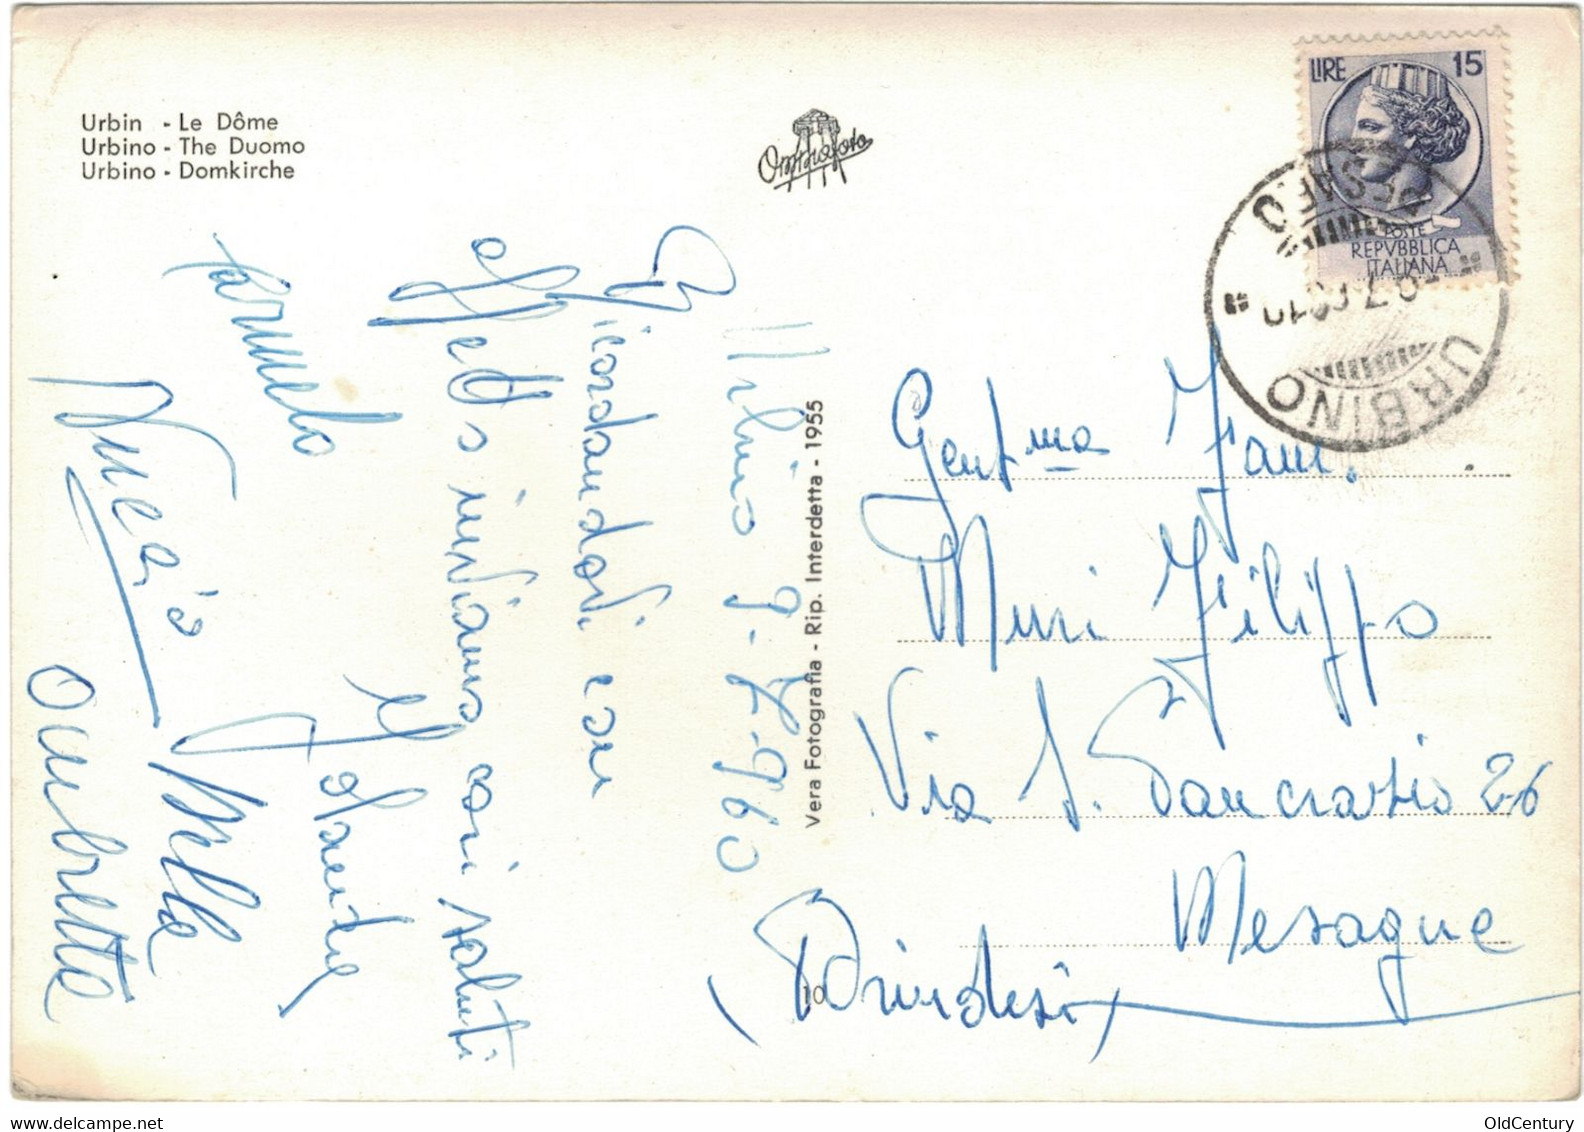 Urbin - Le Dôme
Urbino - The Duomo
Urbino - Domkirche
Omniafoto
LIRE 15
POSTE
REPVBBLICA
ITALIANA
URBINO
PESARO
Vera Fotografia - Rip. Interdetta - 1955
10
Urbino 9-7-960
Ricordandovi con
affetto inviamo cari saluti
Carmelo
Ombretta
Gent.ma Fam.
Muri Filippo
Via S. Pancrazio 26
Mesagne
(Brindisi)
www.delcampe.net
OldCentury